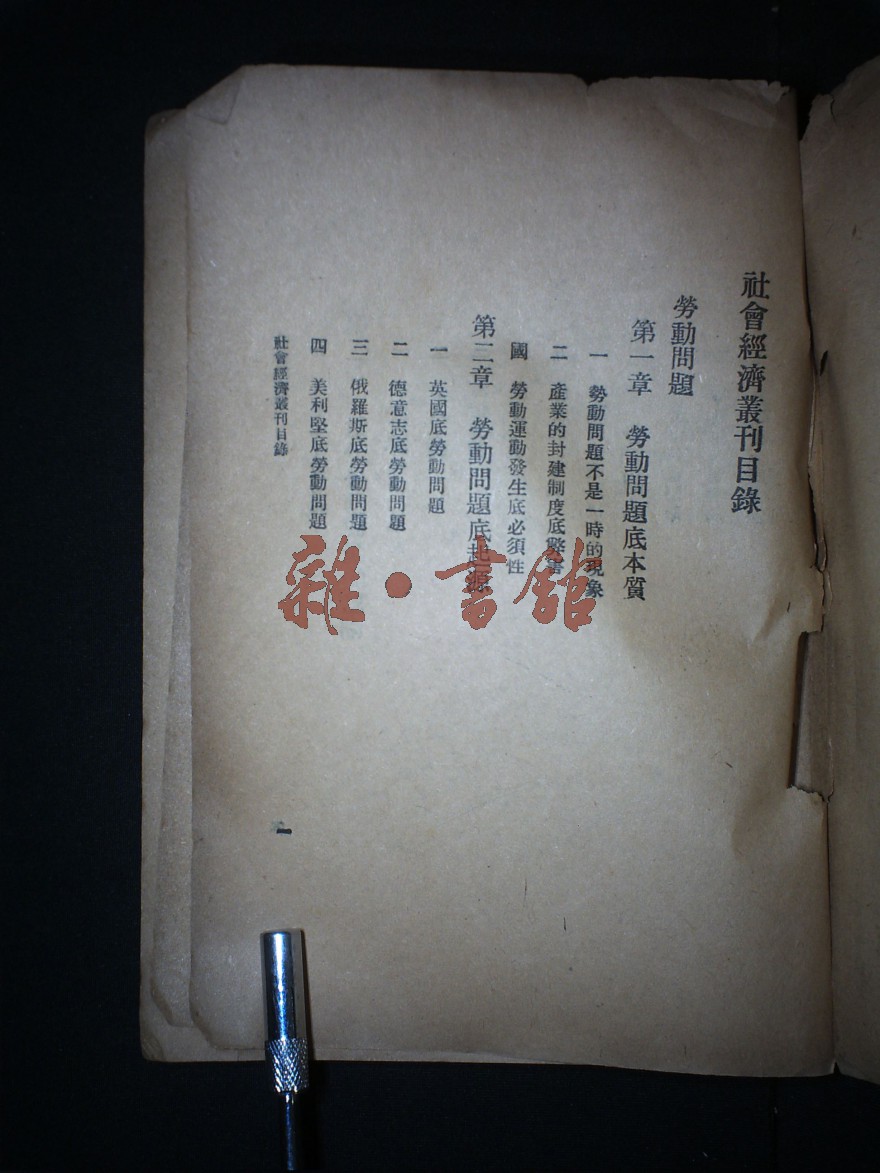 社會經濟叢刊目錄
勞動問題
第一章　勞動問題底本質
一　勢動問題不是一時的現象
二　產業的封建制度底弊害
國　勞動運動發生底必須性
第二章　勞動問題底起源
一　英國底勞動問題
二　德意志底勞動問題
三　俄羅斯底勞動問題
四　美利堅底勞動問題
社會經濟叢刊目錄
一
雜·書館